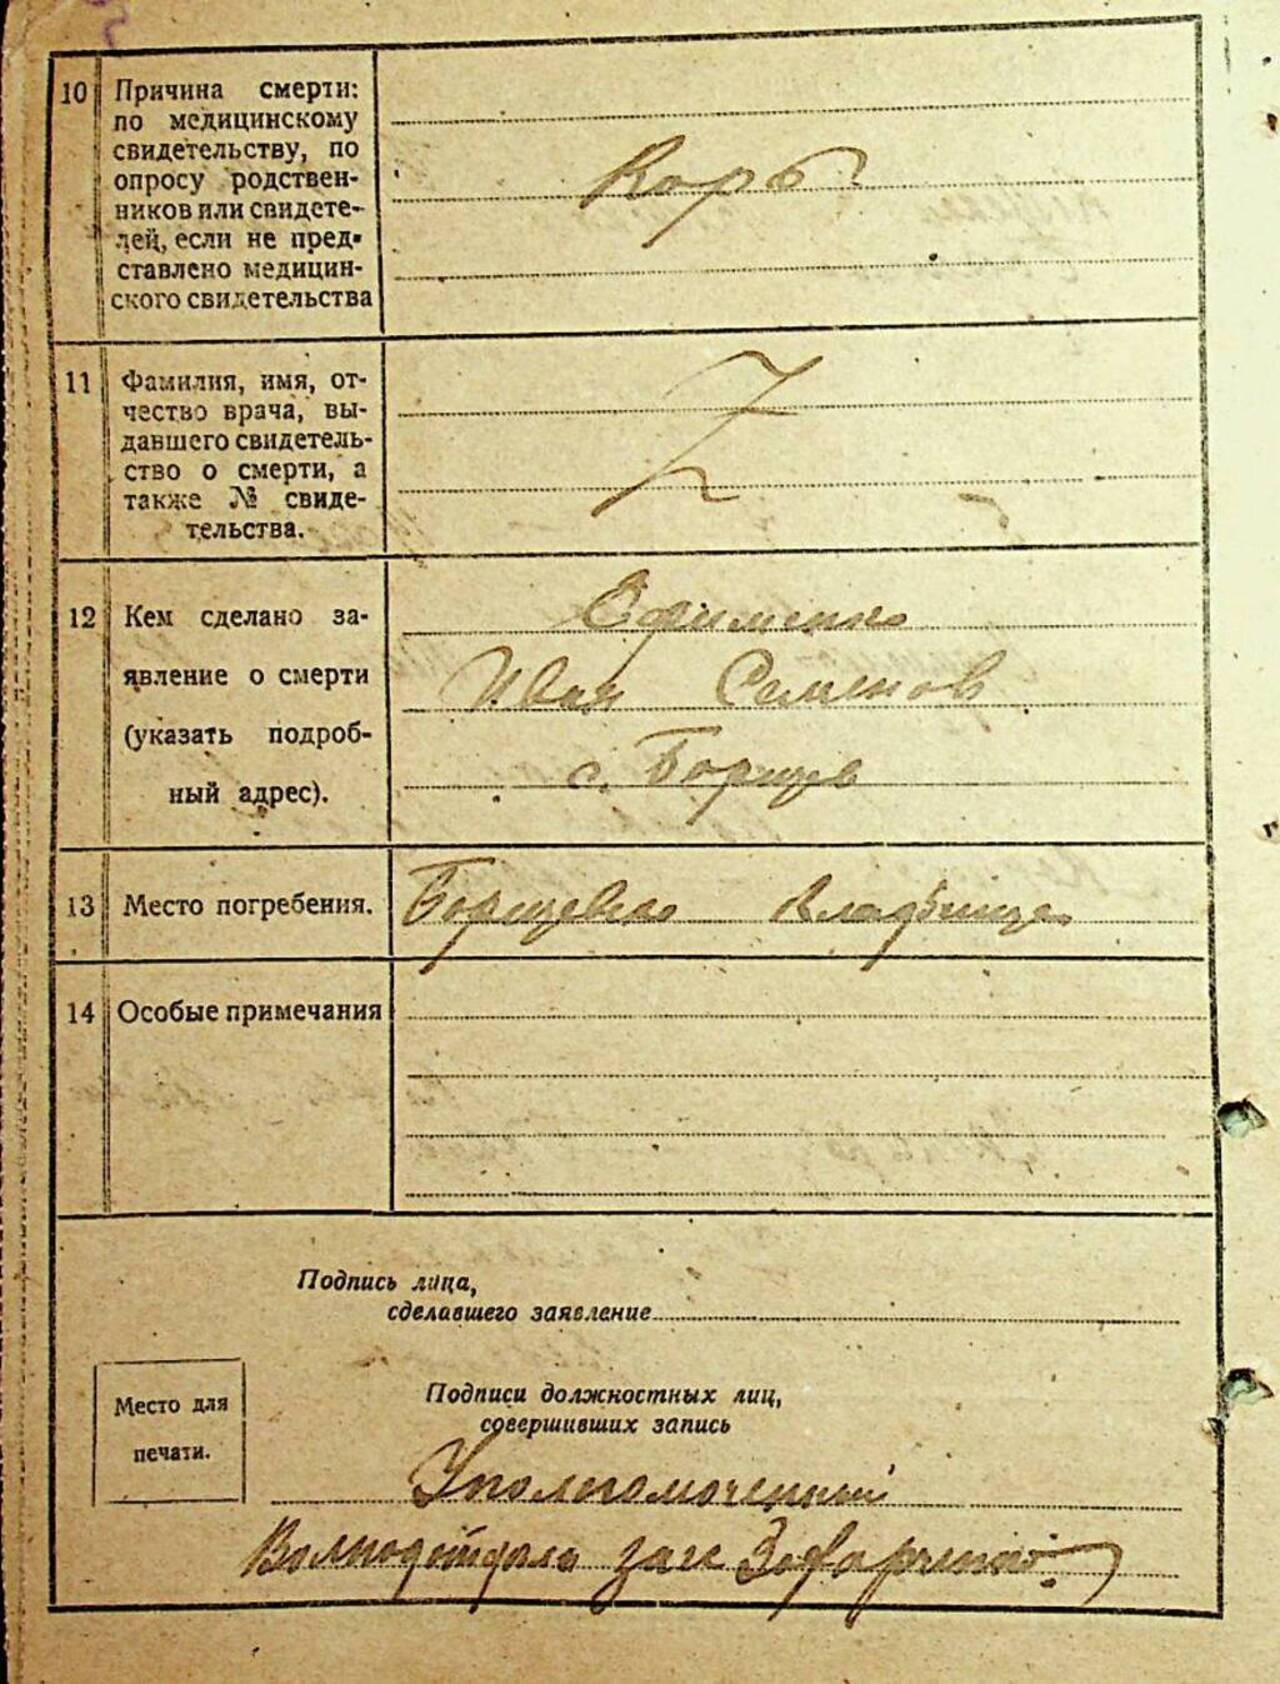 10 Причина смерти:
по медицинскому
свидетельству, по
опросу родствен-
ников или свидете-
лей, если не пред-
ставлено медицин-
ского свидетельства
Корь
11 Фамилия, имя, от-
чество врача, вы-
давшего свидетель-
ство о смерти, а
также № свиде-
тельства.
Z
12 Кем сделано за-
явление о смерти
(указать подроб-
ный адрес).
Ефименко
Иван Семенов
с. Борщев
13 Место погребения.
Борщевско Кладбище
14 Особые примечания
Подпись лица,
сделавшего заявление
Место для
печати.
Подписи должностных лиц,
совершивших запись
Уполномоченный
загс